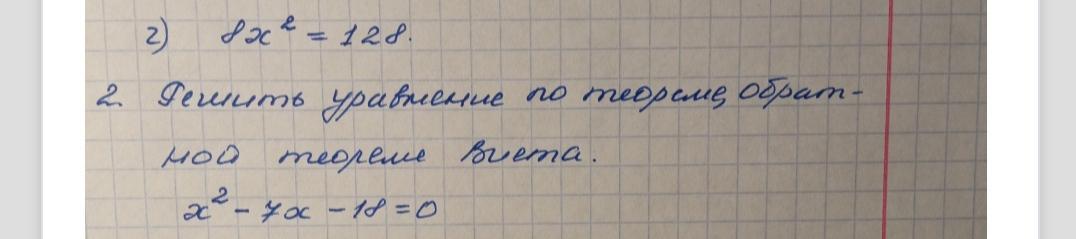 г) 8x² = 128.
2. Решить уравнение по теореме, обрат-
ной теореме Виета.
x² - 7x - 18 = 0